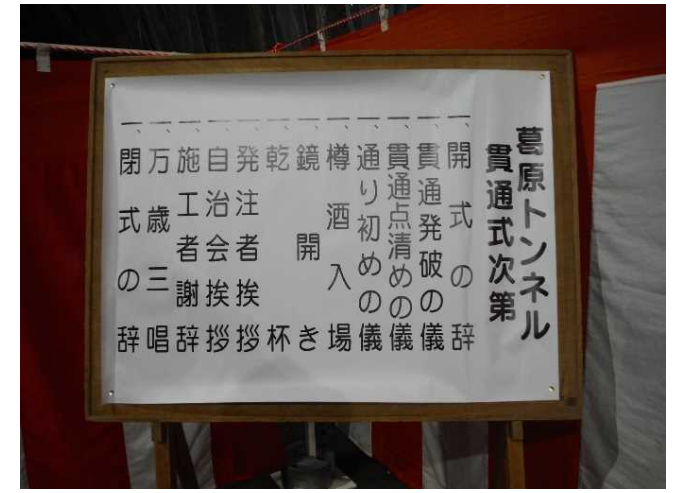 葛原トンネル
貫通式次第
一、開式の辞
一、貫通発破の儀
一、貫通点清めの儀
一、通り初めの儀
一、樽酒入場
一、鏡開き
一、乾杯
一、発注者挨拶
一、自治会挨拶
一、施工者謝辞
一、万歳三唱
一、閉式の辞